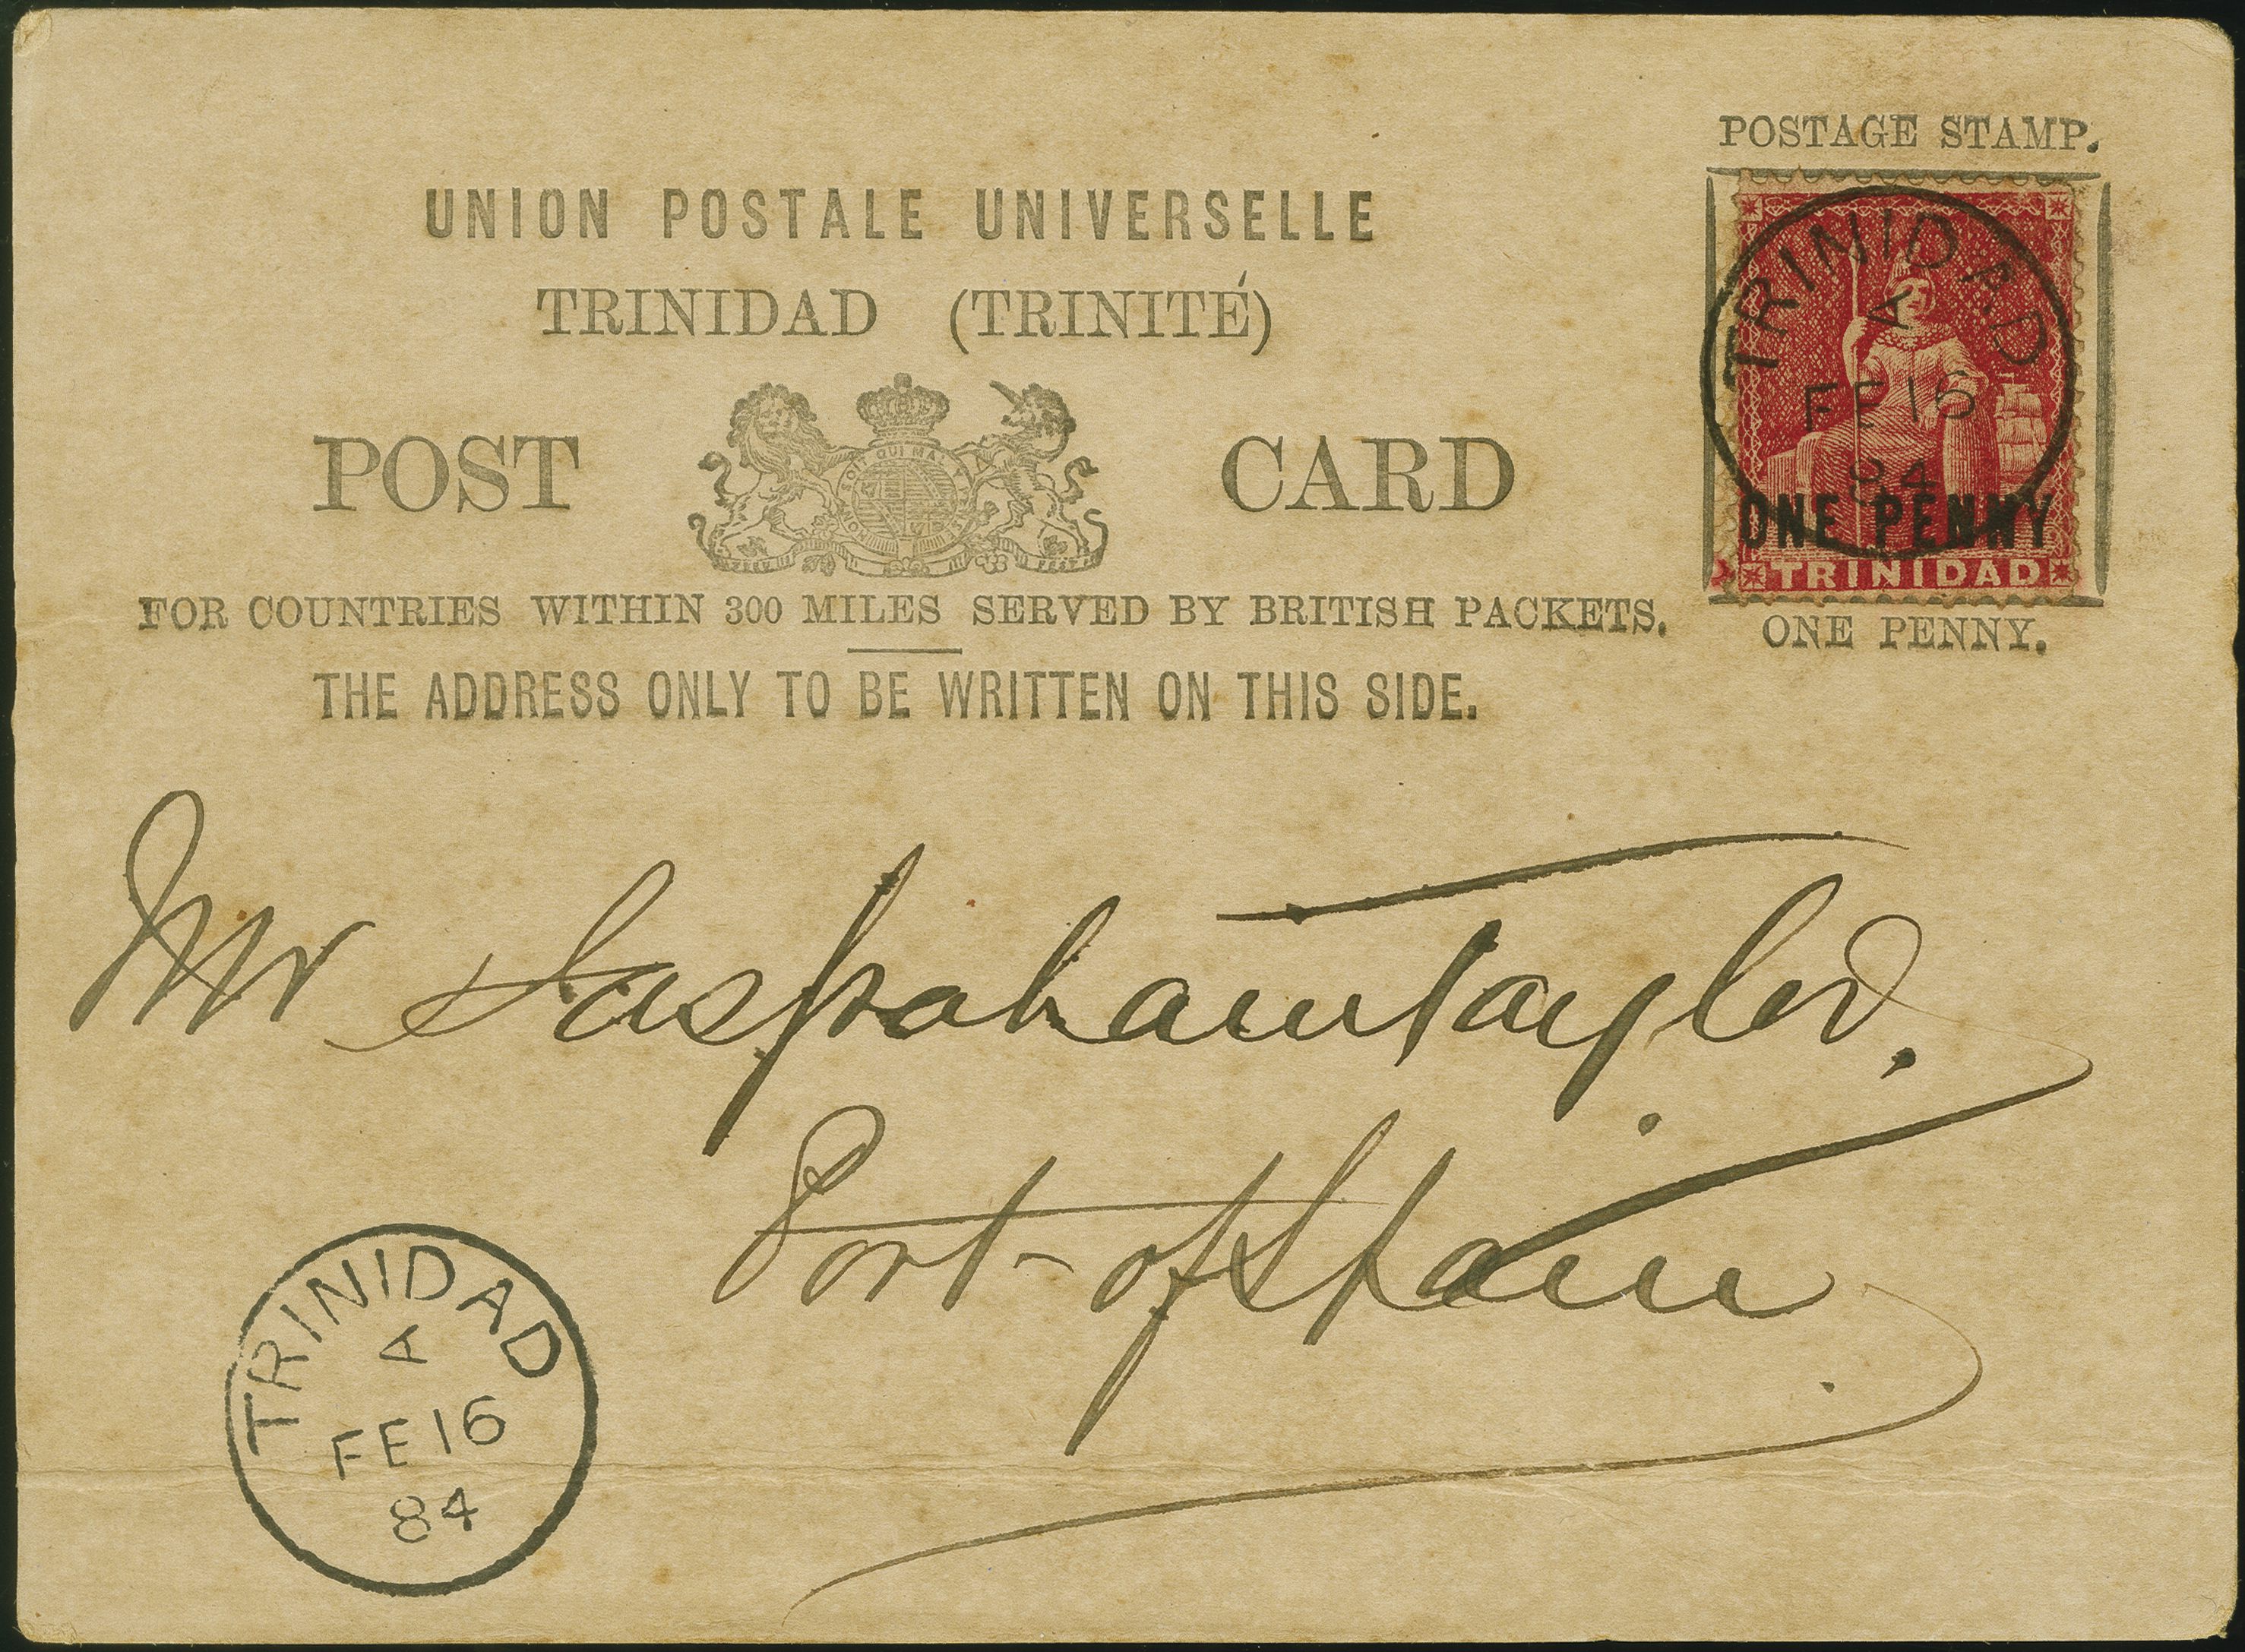 POSTAGE STAMP.
UNION POSTALE UNIVERSELLE
TRINIDAD (TRINITÉ)
POST CARD
FOR COUNTRIES WITHIN 300 MILES SERVED BY BRITISH PACKETS.
THE ADDRESS ONLY TO BE WRITTEN ON THIS SIDE.
TRINIDAD
A
FE 16
84
ONE PENNY
TRINIDAD
ONE PENNY.
Mr Taylor.
Port-of Spain
TRINIDAD
A
FE 16
84